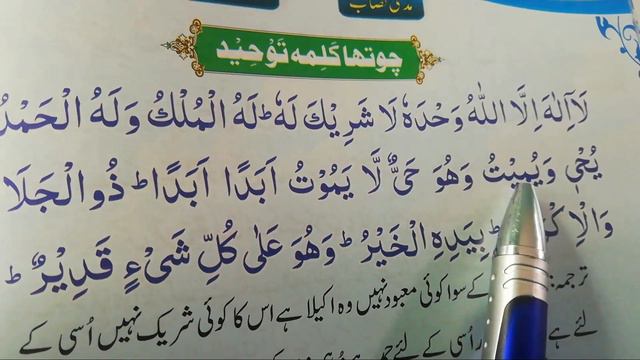 مدنی نصاب
چوتھا کَلِمہ تَوْحِیْد
لَاۤ اِلٰهَ اِلَّا اللّٰهُ وَحْدَهٗ لَا شَرِیْكَ لَهٗ ؕ لَهُ الْمُلْكُ وَ لَهُ الْحَمْدُ
یُحْیٖ وَیُمِیْتُ وَهُوَ حَیٌّ لَّا یَمُوْتُ اَبَدًا اَبَدًا ؕ ذُوالْجَلَا
وَالْاِكْ ؕ بِیَدِهِ الْخَیْرُ ؕ وَهُوَ عَلٰی كُلِّ شَیْءٍ قَدِیْرٌ ؕ
ترجمہ: کے سوا کوئی معبود نہیں وہ اکیلا ہے اس کا کوئی شریک نہیں اُسی کے
لئے ہے اُسی کے لئے